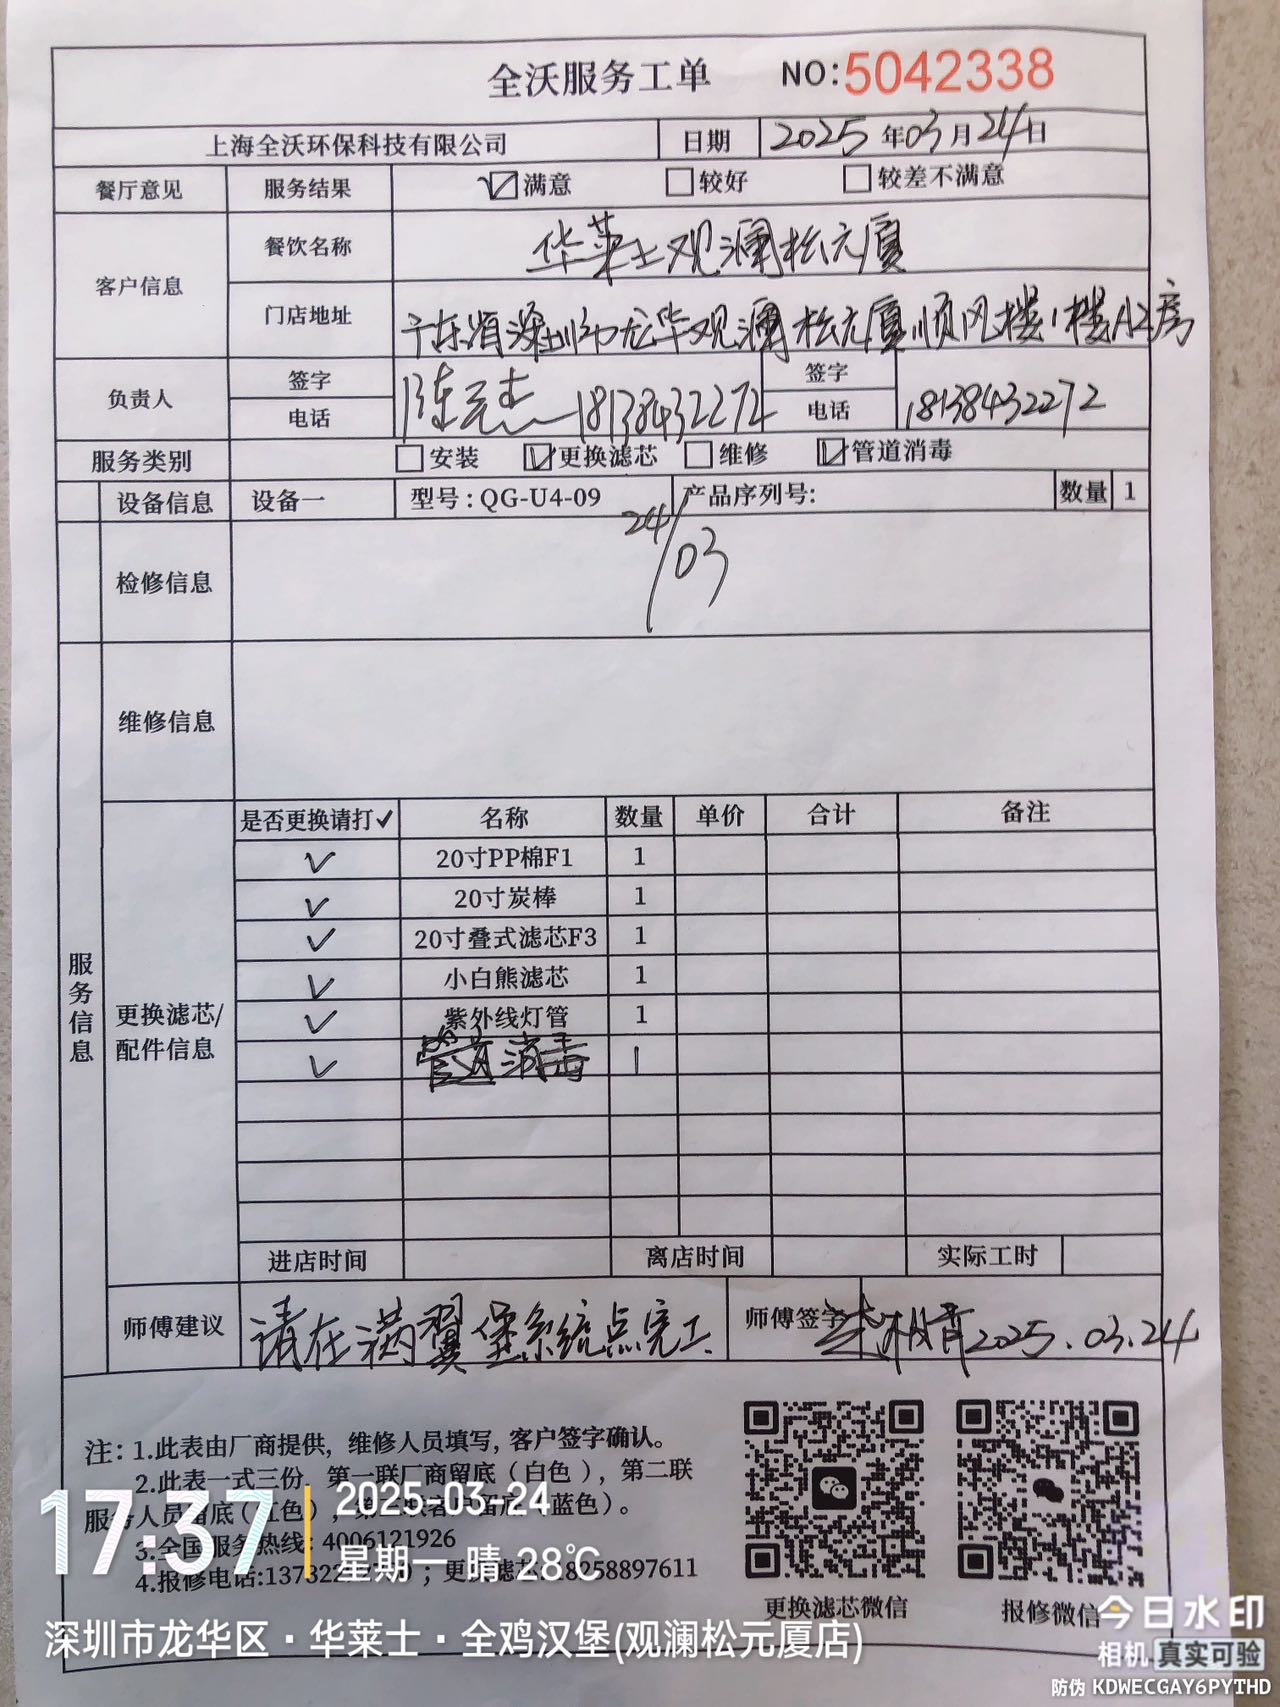 全沃服务工单 NO:5042338
上海全沃环保科技有限公司 日期 2025年03月24日
餐厅意见 服务结果 满意 较好 较差不满意
客户信息 餐饮名称 华莱士观澜松元厦
门店地址 广东省深圳市龙华观澜松元厦顺风楼1楼A2房
负责人 签字 电话 陈元杰 18138432272 签字 电话 18138432272
服务类别 安装 更换滤芯 维修 管道消毒
设备信息 设备一 型号:QG-U4-09 产品序列号: 数量 1
24/03
检修信息
维修信息
服务信息
更换滤芯/配件信息
是否更换请打✓ 名称 数量 单价 合计 备注
✓ 20寸PP棉F1 1
✓ 20寸炭棒 1
✓ 20寸叠式滤芯F3 1
✓ 小白熊滤芯 1
✓ 紫外线灯管 1
✓ 管道消毒 1
进店时间 离店时间 实际工时
师傅建议 请在满翼堡系统点完工 师傅签字 2025.03.24
注: 1.此表由厂商提供, 维修人员填写, 客户签字确认。
2.此表一式三份 第一联厂商留底(白色), 第二联
服务人员留底(红色), 留底(蓝色)。
3.全国服务热线: 4006121926
4.报修电话:13732 ; 更换滤芯:18258897611
更换滤芯微信 报修微信
17:37
2025-03-24
星期一 晴 28℃
深圳市龙华区·华莱士·全鸡汉堡(观澜松元厦店)
今日水印
相机 真实可验
防伪 KDWECGAY6PYTHD